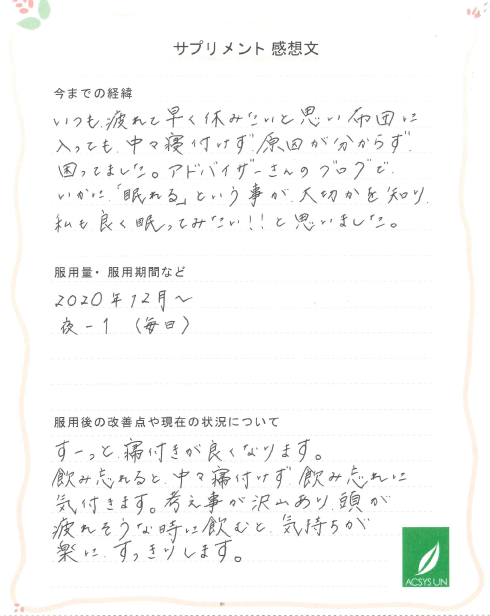 サプリメント 感想文
今までの経緯
いつも、疲れて早く休みたいと思い布団に
入っても、中々寝付けず、原因が分からず、
困ってました。アドバイザーさんのブログで、
いかに「眠れる」という事が、大切かを知り、
私も良く眠ってみたい!!と思いました。
服用量・服用期間など
2020年12月〜
夜-1 (毎日)
服用後の改善点や現在の状況について
すーっと、寝付きが良くなります。
飲み忘れると、中々寝付けず、飲み忘れに
気付きます。考え事が沢山あり、頭が
疲れそうな時に飲むと、気持ちが
楽に、すっきりします。
ACSYS UN